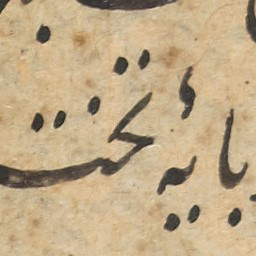 پایهٔ تخت